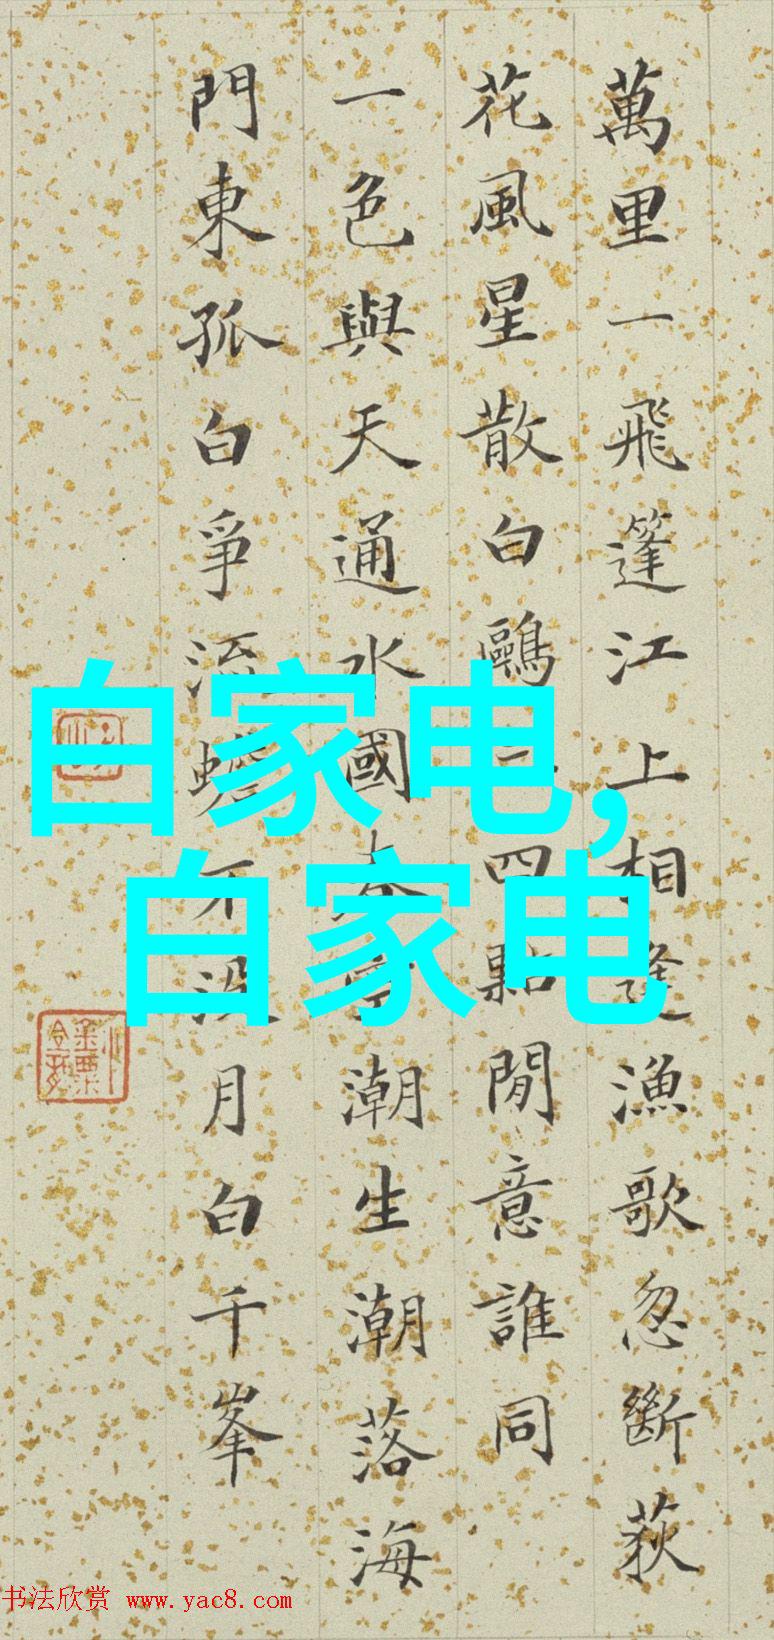 萬里一飛篷江上相逢漁歌忽斷荻
花風星散白鷗四點閒意誰同
一色與天通水國潮生潮落海
門東孤白爭流蟾不沒月白千峯
白家电,
白家电
书法欣赏 www.yac8.com